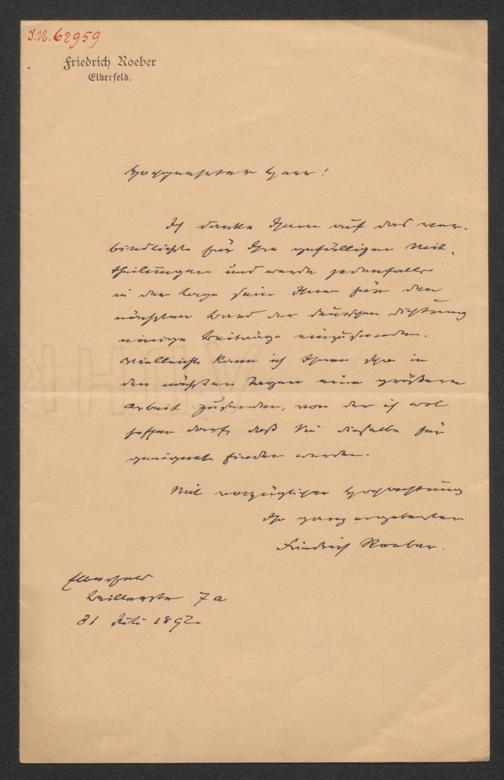 I.N. 62959
Friedrich Roeber
Elberfeld.
Hochgeehrter Herr!
Ich danke Ihnen auf das ver-
bindlichste für Ihre gefälligen Mit-
theilungen und werde jedenfalls
in der Lage sein Ihnen für den
nächsten Band der deutschen Dichtung
einige Beiträge einzusenden.
Vielleicht kann ich Ihnen schon in
den nächsten Tagen eine größere
Arbeit zusenden, von der ich wol
hoffen darf, daß Sie dieselbe für
geeignet finden werden.
Mit vorzüglicher Hochachtung
Ihr ganz ergebenster
Friedrich Roeber.
Elberfeld
7a
31 Juli 1892.